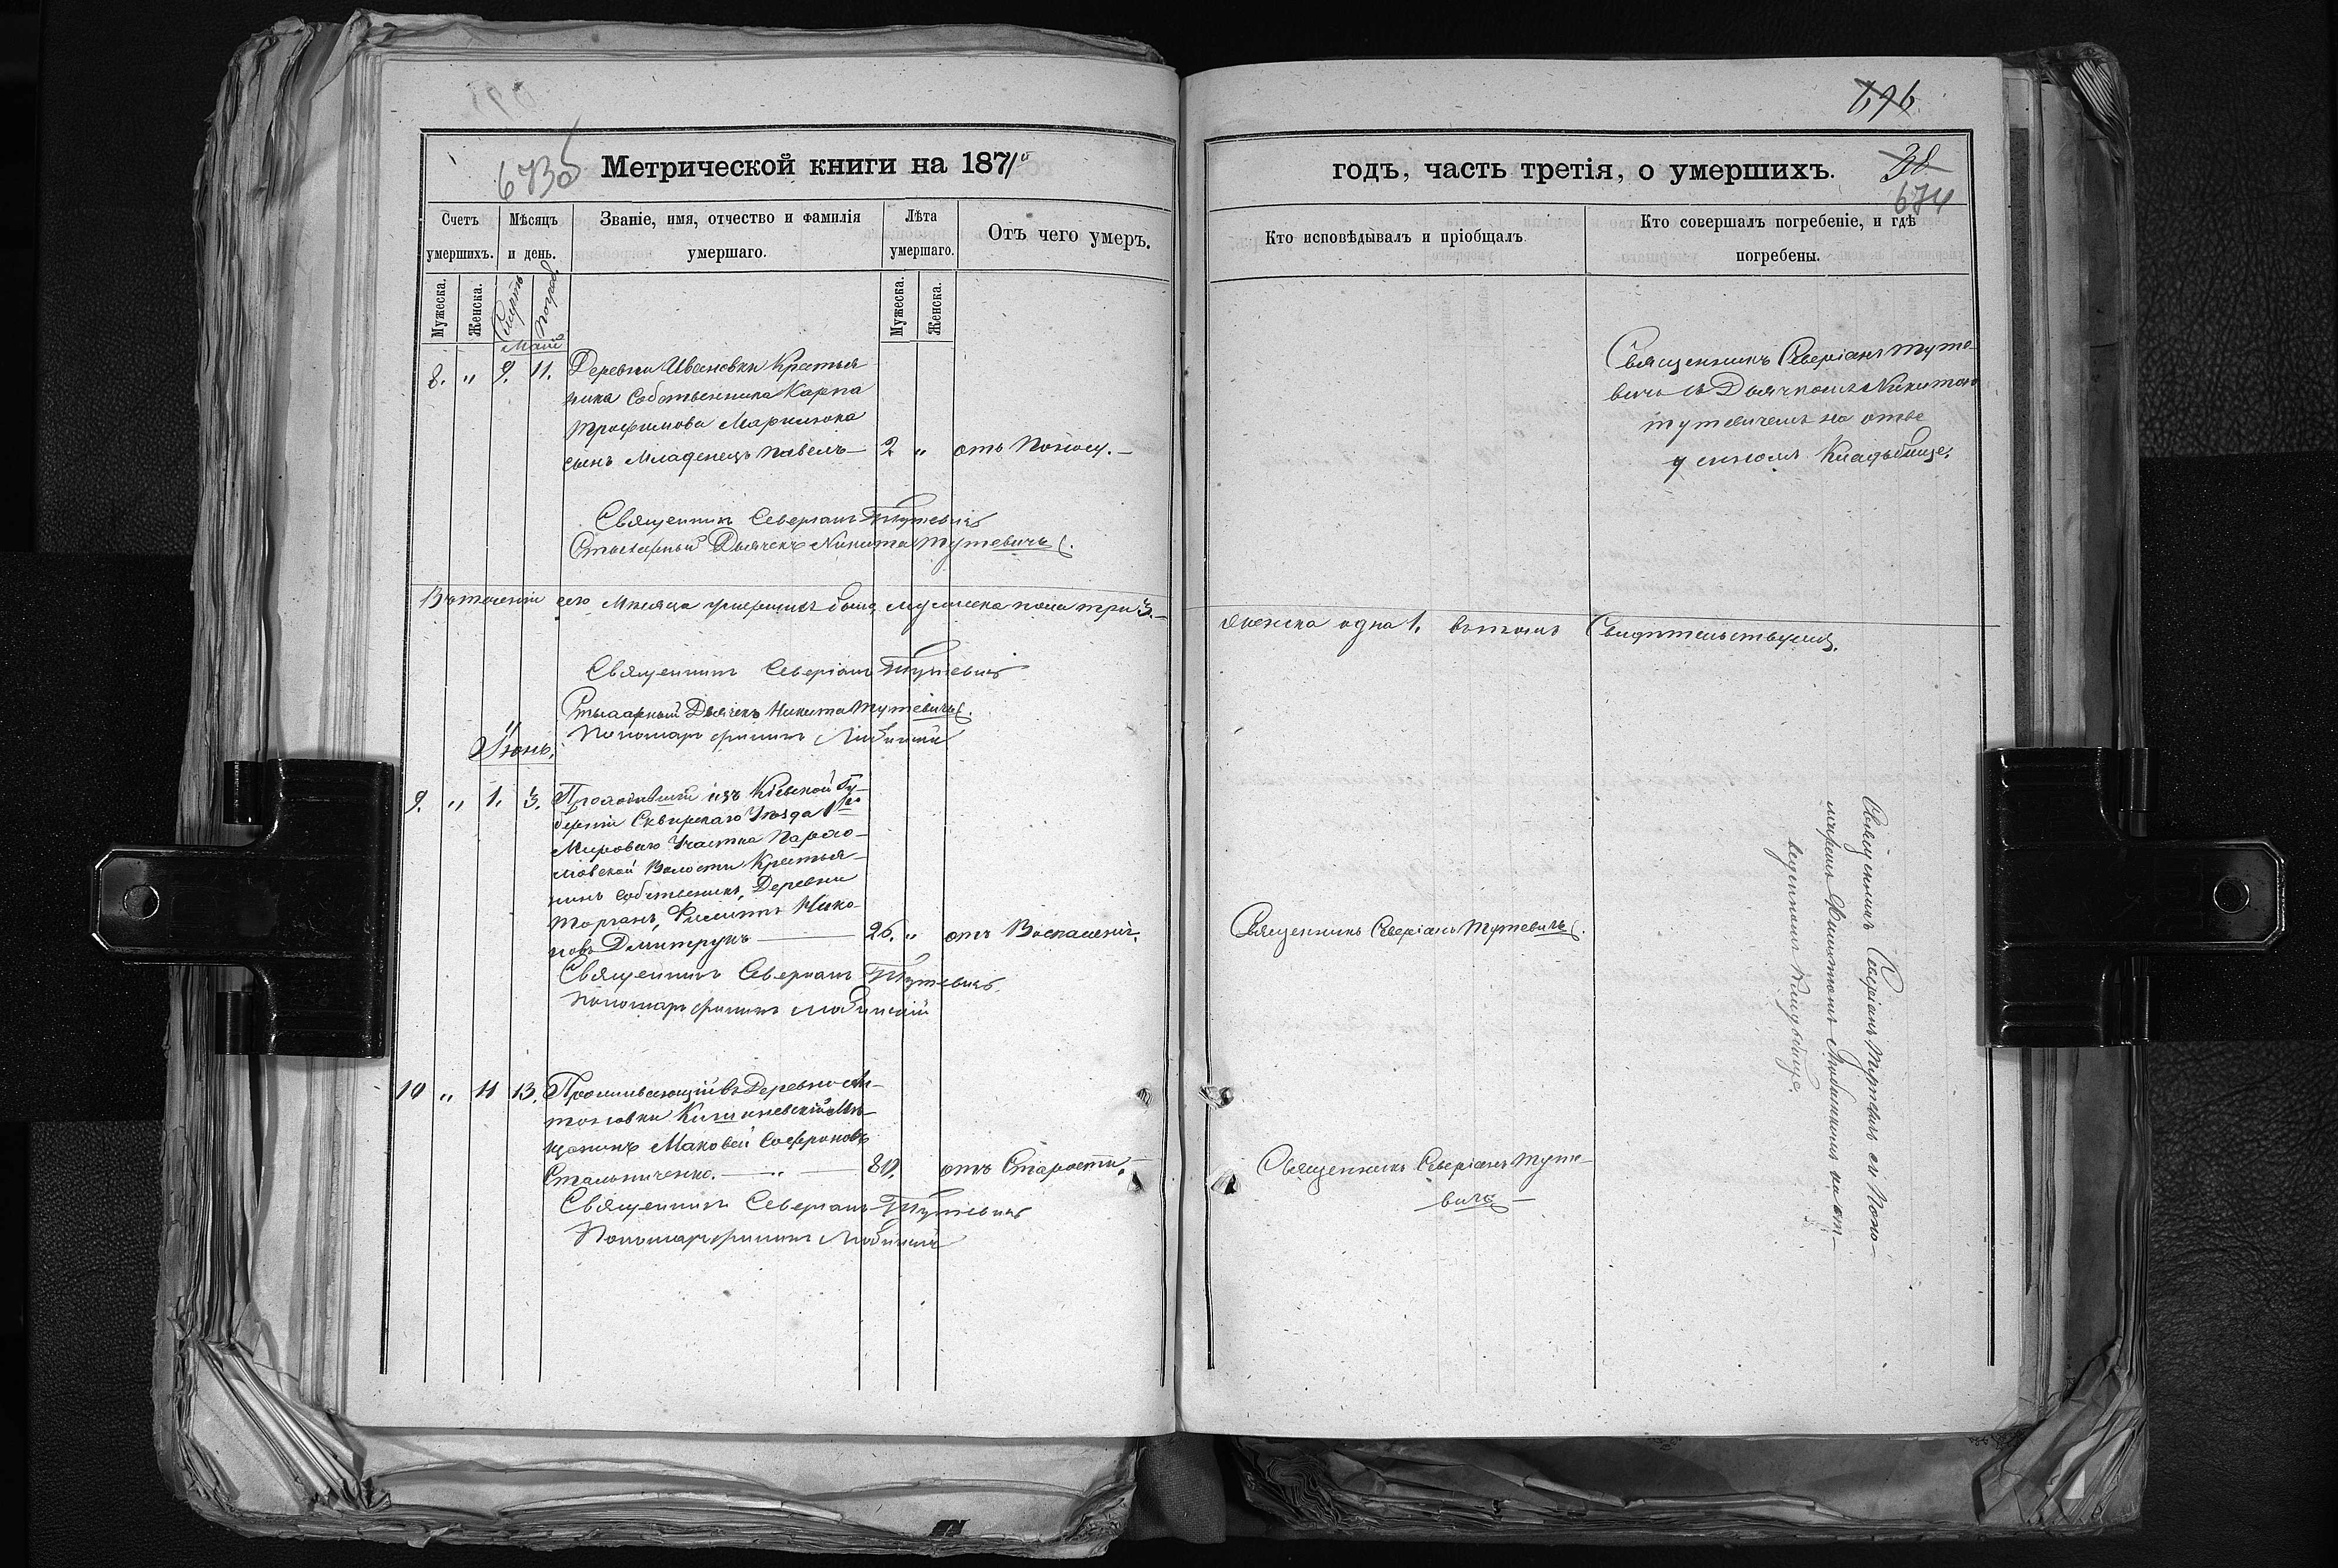 673об
Метрической книги на 1871й
Счетъ умершихъ.
Мѣсяцъ и день.
Званіе, имя, отчество и фамилія умершаго.
Лѣта умершаго.
Отъ чего умеръ.
Мужеска.
Женска.
Смерть
Погреб.
Мужеска.
Женска.
Маій
8. „ 9. 11. Деревни Ивановки Крестья
нина Собственника Карпа
Трофимова
сынъ Младенецъ Павелъ — 2 „ отъ Поносу. —
Священникъ Северіанъ Тутевичъ
Дьячекъ Никита Тутевичъ.
Въ теченіи сего Мѣсяца умершихъ было мужеска пола три 3. —
Священникъ Северіанъ Тутевичъ
Дьячекъ Никита Тутевичъ.
Пономарь Филипъ Любинскій
Іюнь.
9. „ 1. 3. Проходившій изъ Кіевской Гу-
берніи Сквирскаго Уѣзда 1го
Мироваго Участка
Волости Крестья-
нинъ собственникъ, Деревни
Филиппъ Нико-
новъ Дмитрукъ — 26. „ отъ Воспаленія.
Священникъ Северіанъ Тутевичъ
Пономарь Филипъ Любинскій
10 „ 11 13. Проживающій въ Деревне Ан-
тоновки Кишиневскій Мѣ-
щанинъ Маковей Софроновъ
Стальниченко. — „ — 80. отъ Старости. —
Священникъ Северіанъ Тутевичъ
Пономарь Филипъ Любинскій
696
годъ, часть третія, о умершихъ.
38
674
Кто исповѣдывалъ и пріобщалъ.
Кто совершалъ погребеніе, и гдѣ погребены.
Священникъ Северіанъ Туте-
вичъ съ Дьячкомъ Никитою
Тутевичемъ на отве
денномъ Кладбище.
женска одна 1. въ томъ Свидѣтельствуемъ.
Священникъ Северіанъ Тутевичъ.
Священникъ Северіанъ Тутевичъ съ Поно-
маремъ Филиппомъ Любинскимъ на от-
веденномъ Кладбище.
Священникъ Северіанъ Туте-
вичъ —